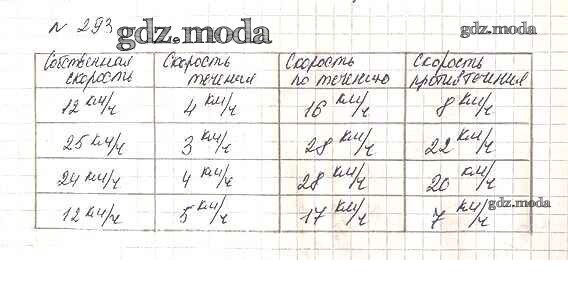 N 293 gdz.moda gdz.moda
Собственная скорость Скорость течения Скорость по течению Скорость против течения
12 км/ч 4 км/ч 16 км/ч 8 км/ч
25 км/ч 3 км/ч 28 км/ч 22 км/ч
24 км/ч 4 км/ч 28 км/ч 20 км/ч
gdz.moda
12 км/ч 5 км/ч 17 км/ч 7 км/ч